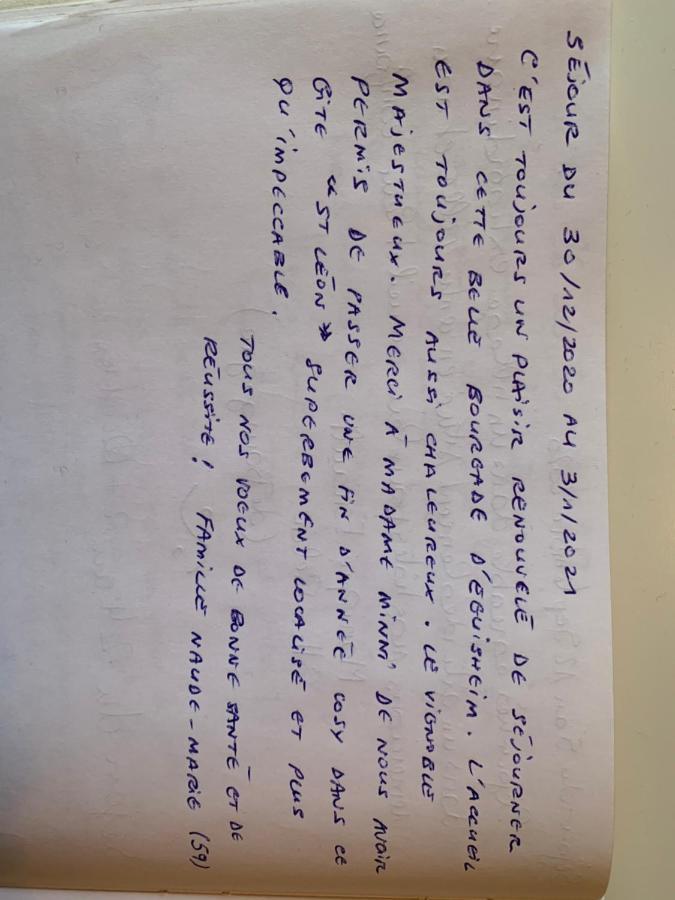 SÉJOUR DU 30/12/2020 AU 3/1/2021
C'EST TOUJOURS UN PLAISIR RENOUVELÉ DE SÉJOURNER
DANS CETTE BELLE BOURGADE D'EGUISHEIM. L'ACCUEIL
EST TOUJOURS AUSSI CHALEUREUX. LE VIGNOBLE
MAJESTUEUX. MERCI À MADAME MINNI DE NOUS AVOIR
PERMIS DE PASSER UNE FIN D'ANNÉE COSY DANS CE
GÎTE "ST LÉON" SUPERBEMENT LOCALISÉ ET PLUS
QU'IMPECCABLE.
TOUS NOS VOEUX DE BONNE SANTÉ ET DE
RÉUSSITE! FAMILLE NAUDE-MARIE (59)